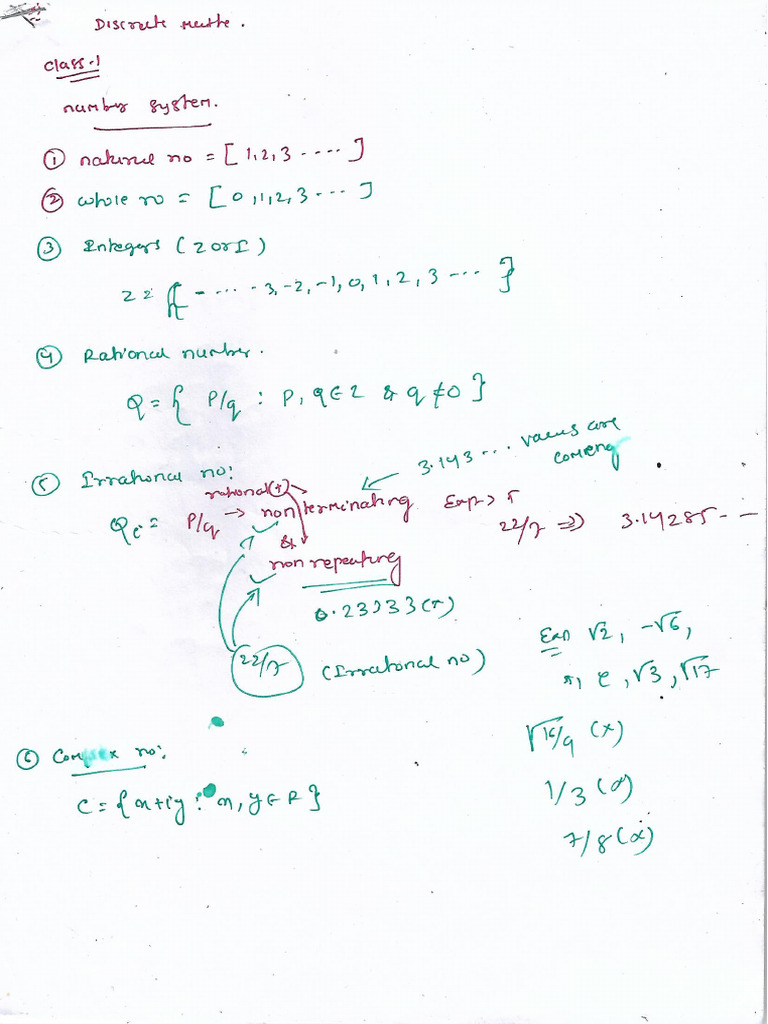 Discrete Mathe.
class-1
number system.
① natural no = [ 1,2,3 ---- ]
② whole no = [ 0,1,2,3 --- ]
③ Integers ( Z or I )
Z = { - ---- -3,-2,-1,0,1,2,3 --- }
④ Rational number.
Q = { P/q : P,q ∈ Z & q ≠ 0 }
⑤ Irrational no:
3.143 --- values are coming
rational(r)
Qc = P/q → non terminating Exp > π
& 22/7 ⇒ 3.14285 - -
non repeating
0.23333 (r)
22/7 (Irrational no)
Exp √2, -√6,
π, e, √3, √17
√16/9 (x)
1/3 (x)
7/8 (x)
⑥ Complex no:
C = { x+iy : x,y ∈ R }